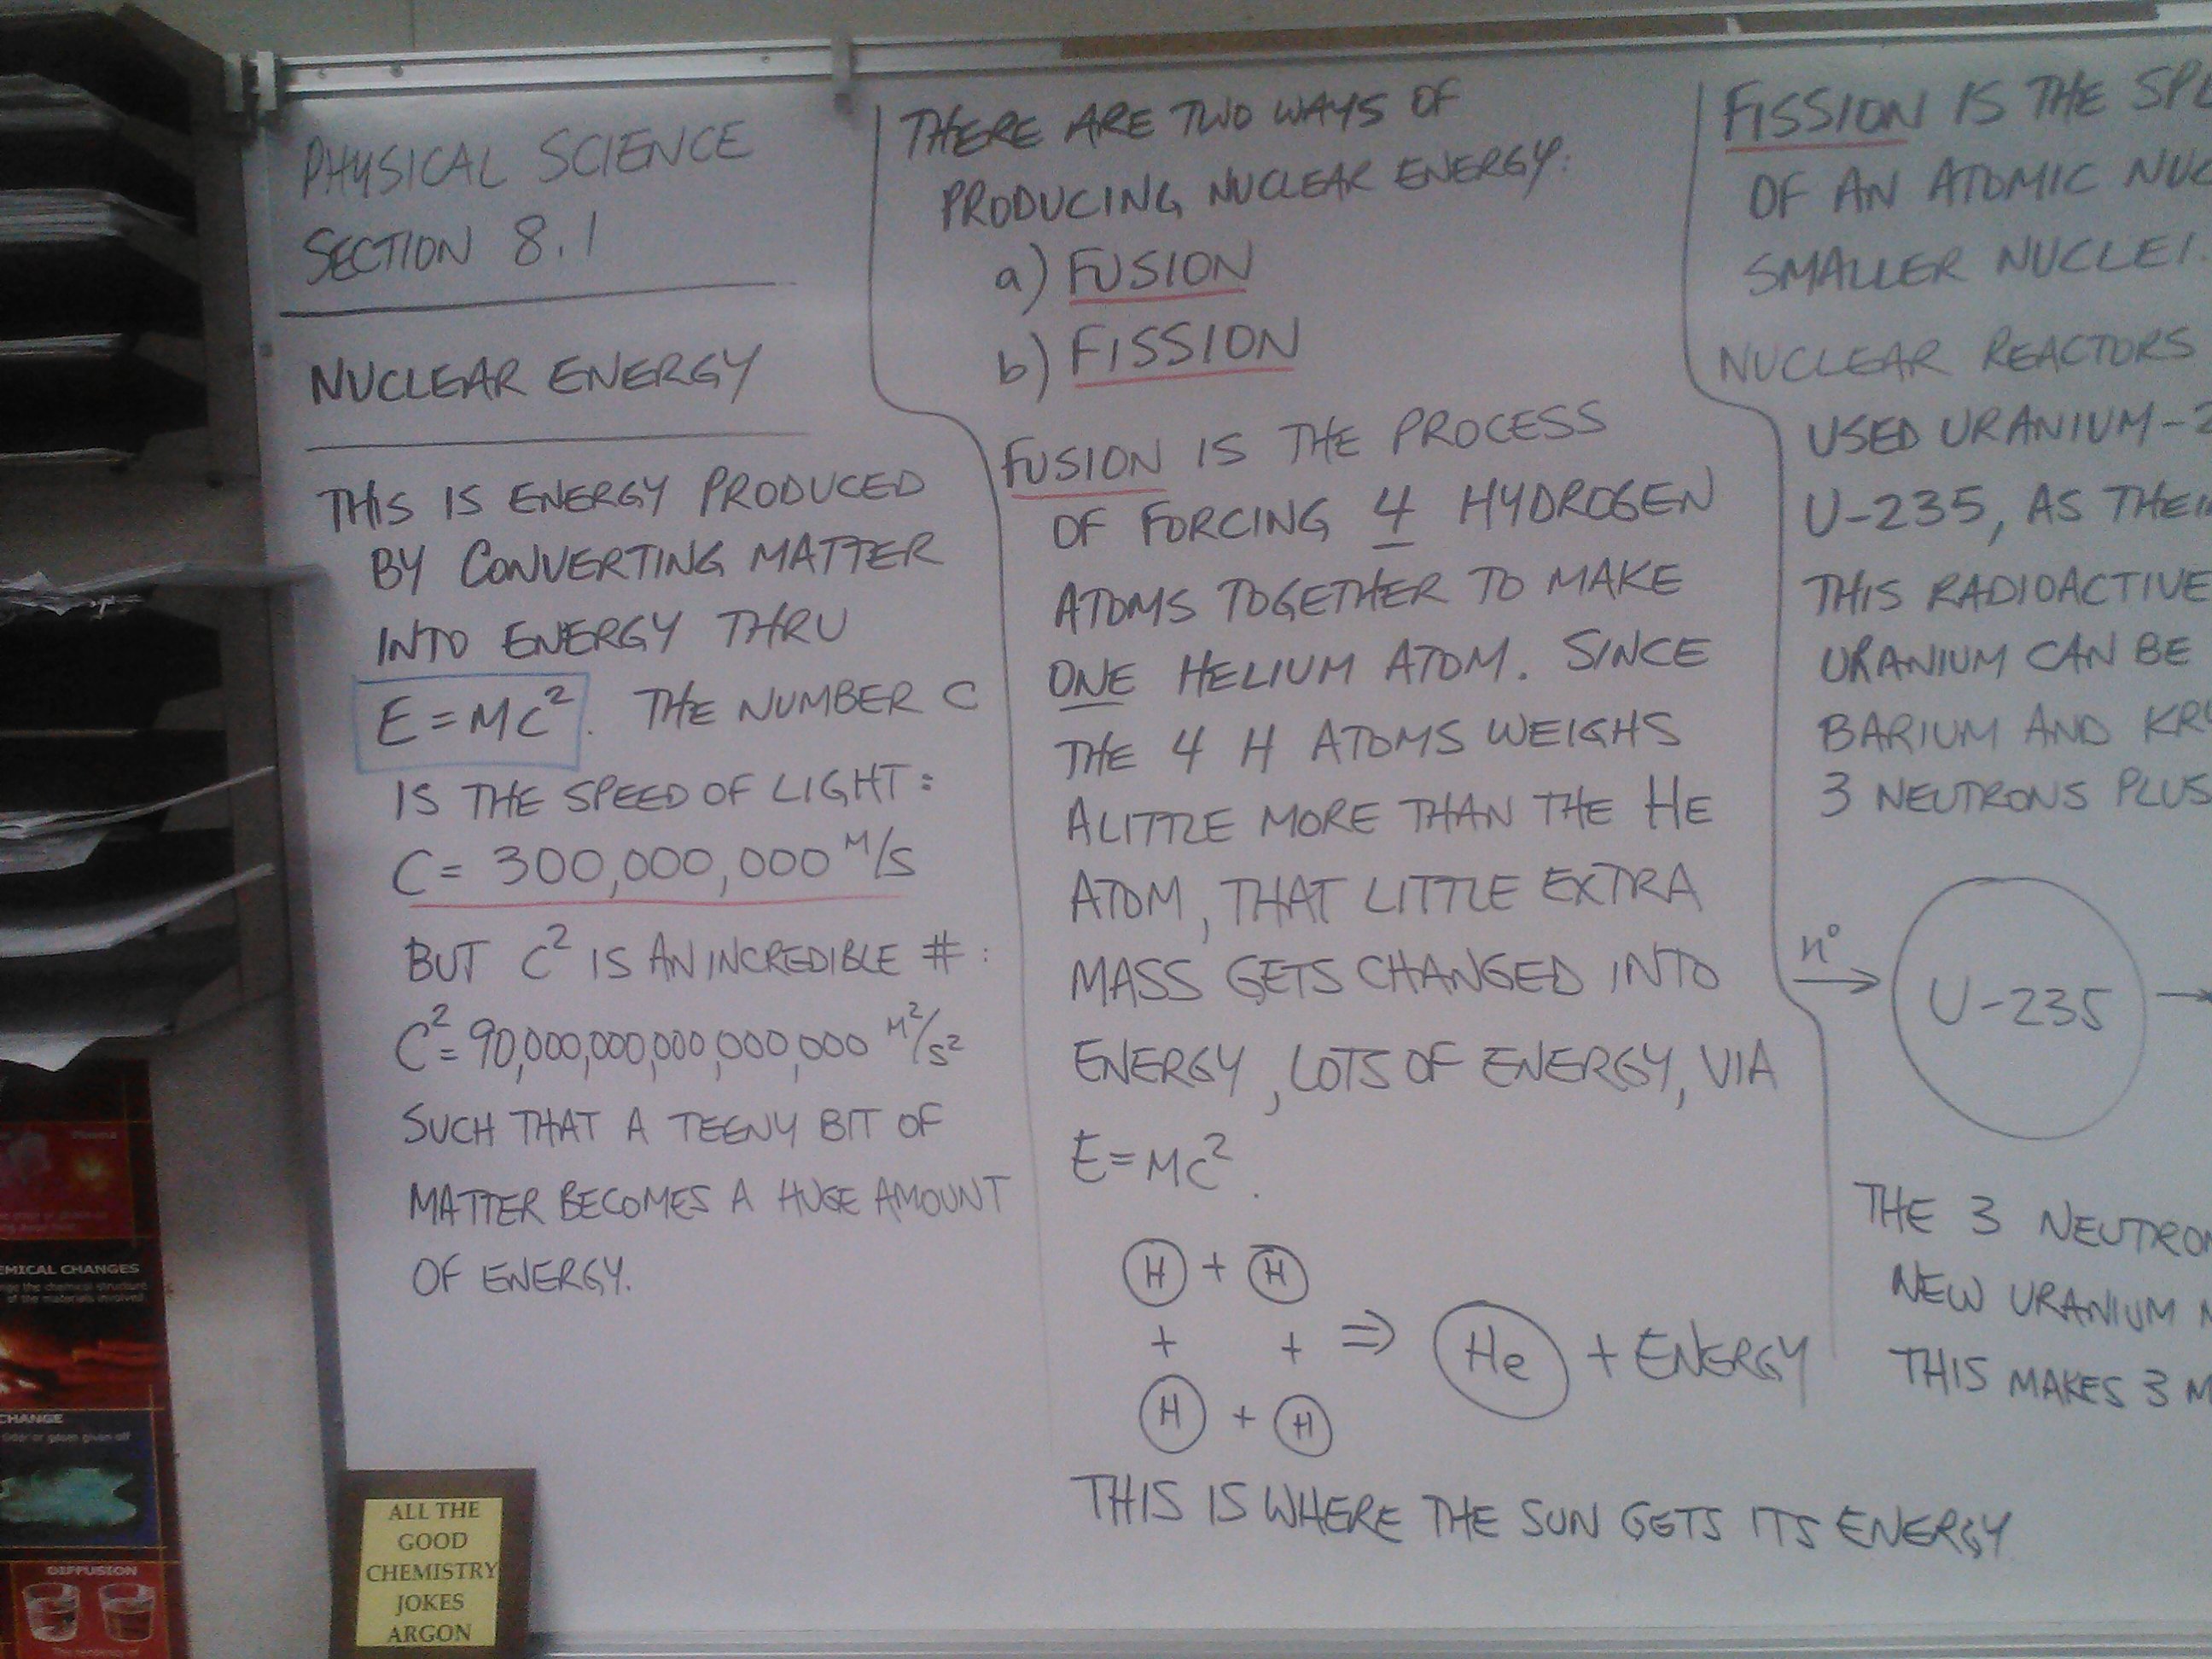 PHYSICAL SCIENCE
SECTION 8.1
NUCLEAR ENERGY
THIS IS ENERGY PRODUCED
BY CONVERTING MATTER
INTO ENERGY THRU
E=MC². THE NUMBER C
IS THE SPEED OF LIGHT:
C= 300,000,000 M/S
BUT C² IS AN INCREDIBLE #:
C²= 90,000,000,000,000,000 M²/S²
SUCH THAT A TEENY BIT OF
MATTER BECOMES A HUGE AMOUNT
OF ENERGY.
THERE ARE TWO WAYS OF
PRODUCING NUCLEAR ENERGY:
a) FUSION
b) FISSION
FUSION IS THE PROCESS
OF FORCING 4 HYDROGEN
ATOMS TOGETHER TO MAKE
ONE HELIUM ATOM. SINCE
THE 4 H ATOMS WEIGHS
A LITTLE MORE THAN THE HE
ATOM, THAT LITTLE EXTRA
MASS GETS CHANGED INTO
ENERGY, LOTS OF ENERGY, VIA
E=MC².
H + H
+ + ⇒ He + ENERGY
H + H
THIS IS WHERE THE SUN GETS ITS ENERGY
FISSION IS THE SPL
OF AN ATOMIC NUC
SMALLER NUCLEI.
NUCLEAR REACTORS
USED URANIUM-2
U-235, AS THEI
THIS RADIOACTIVE
URANIUM CAN BE
BARIUM AND KRY
3 NEUTRONS PLUS
n° → U-235 →
THE 3 NEUTRON
NEW URANIUM N
THIS MAKES 3 M
ALL THE
GOOD
CHEMISTRY
JOKES
ARGON
Plasma
EMICAL CHANGES
nge the chemical structure
of the materials involved
CHANGE
Odor or gases given off
DIFFUSION
The tendency of